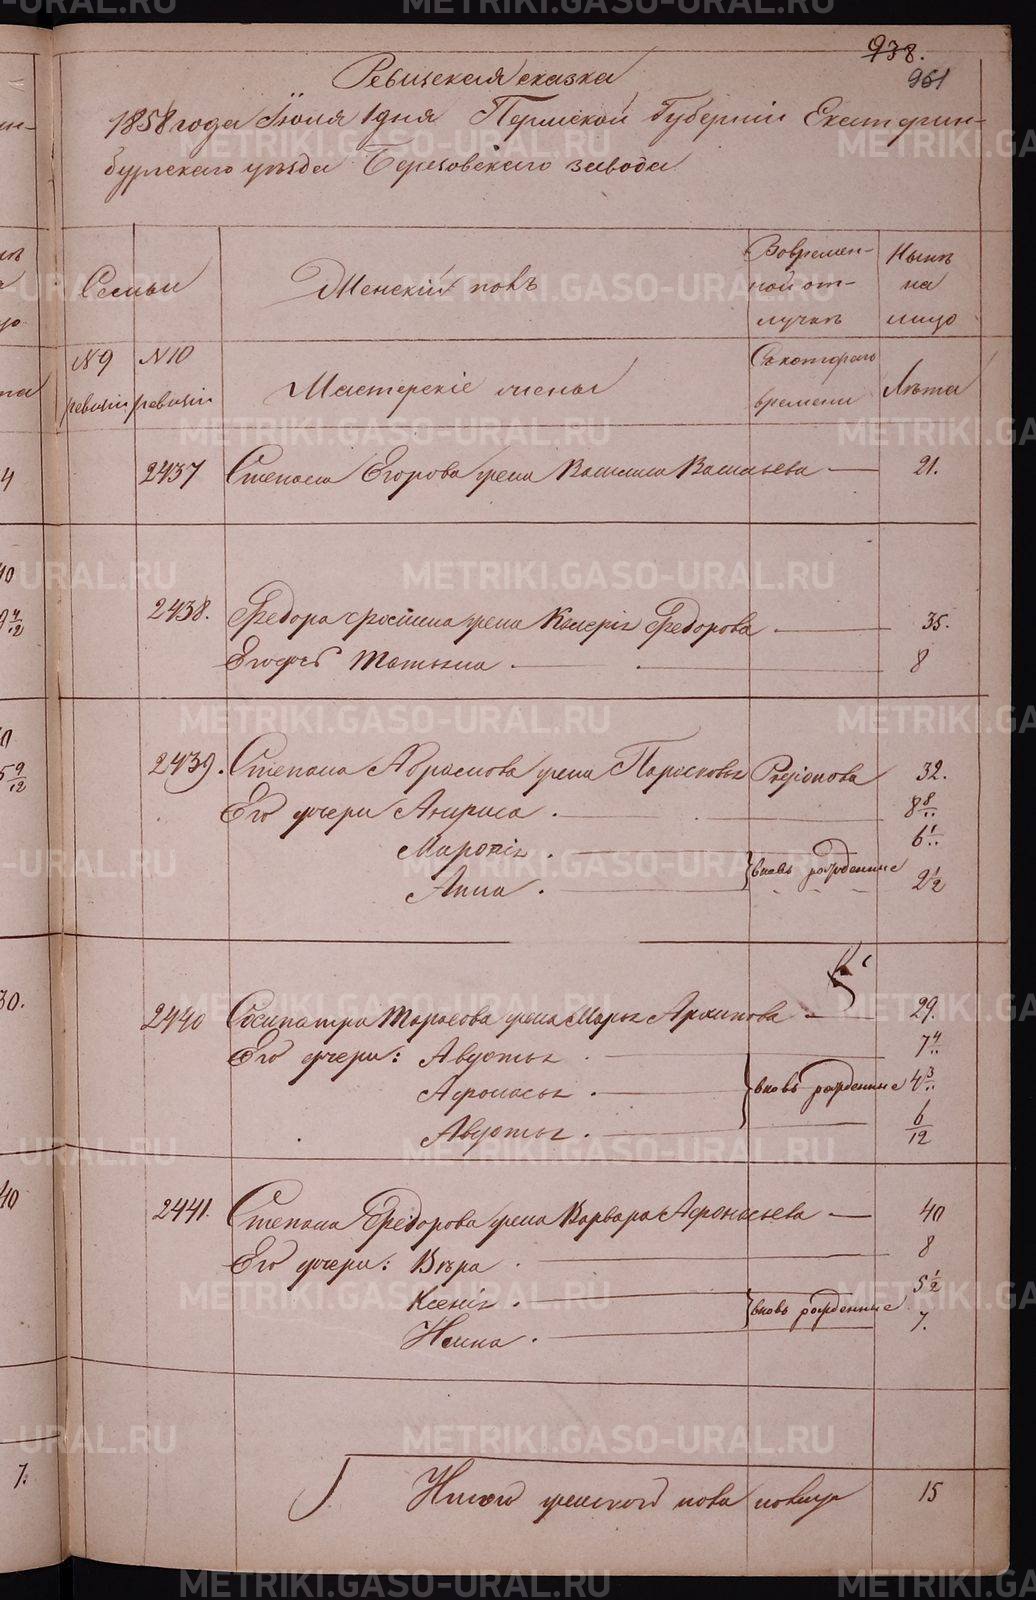 938.
961
Ревизская сказка
1858 года Июля 1 дня Пермской Губернiи Екатерин-
бургскаго уѣзда Березовскаго завода
Семьи
Женскiй полъ
Вовремен-
ной от-
лучкѣ
Нынѣ
на
лицо
N 9
ревизiи
N 10
ревизiи
Мастерскiе члены
Съ котораго
времени
Лѣта
2437 Степана Егорова жена Васильева — 21.
2438. Федора жена Федорова — 35.
Его дочь Татьяна — 8
2439. Степана Абрамова жена Парасковья Родiонова 32.
Его дочери Анфиса . — 8 8/..
. — 6 1/..
Анна . — вновь рожденные 2 1/2
2440 Сосипатра Тарасова жена Марья Архипова — 29.
Его дочери: Авдотья . — 7 4/..
Афонасья . — вновь рожденные 4 3/..
Авдотья . — 6/12
2441. Степана Федорова жена Варвара Афонасьева — 40
Его дочери: Вѣра . — 8
Ксенiя . — вновь рожденные 5 1/2
. — 7.
Итого женскаго пола 15
METRIKI.GASO-URAL.RU